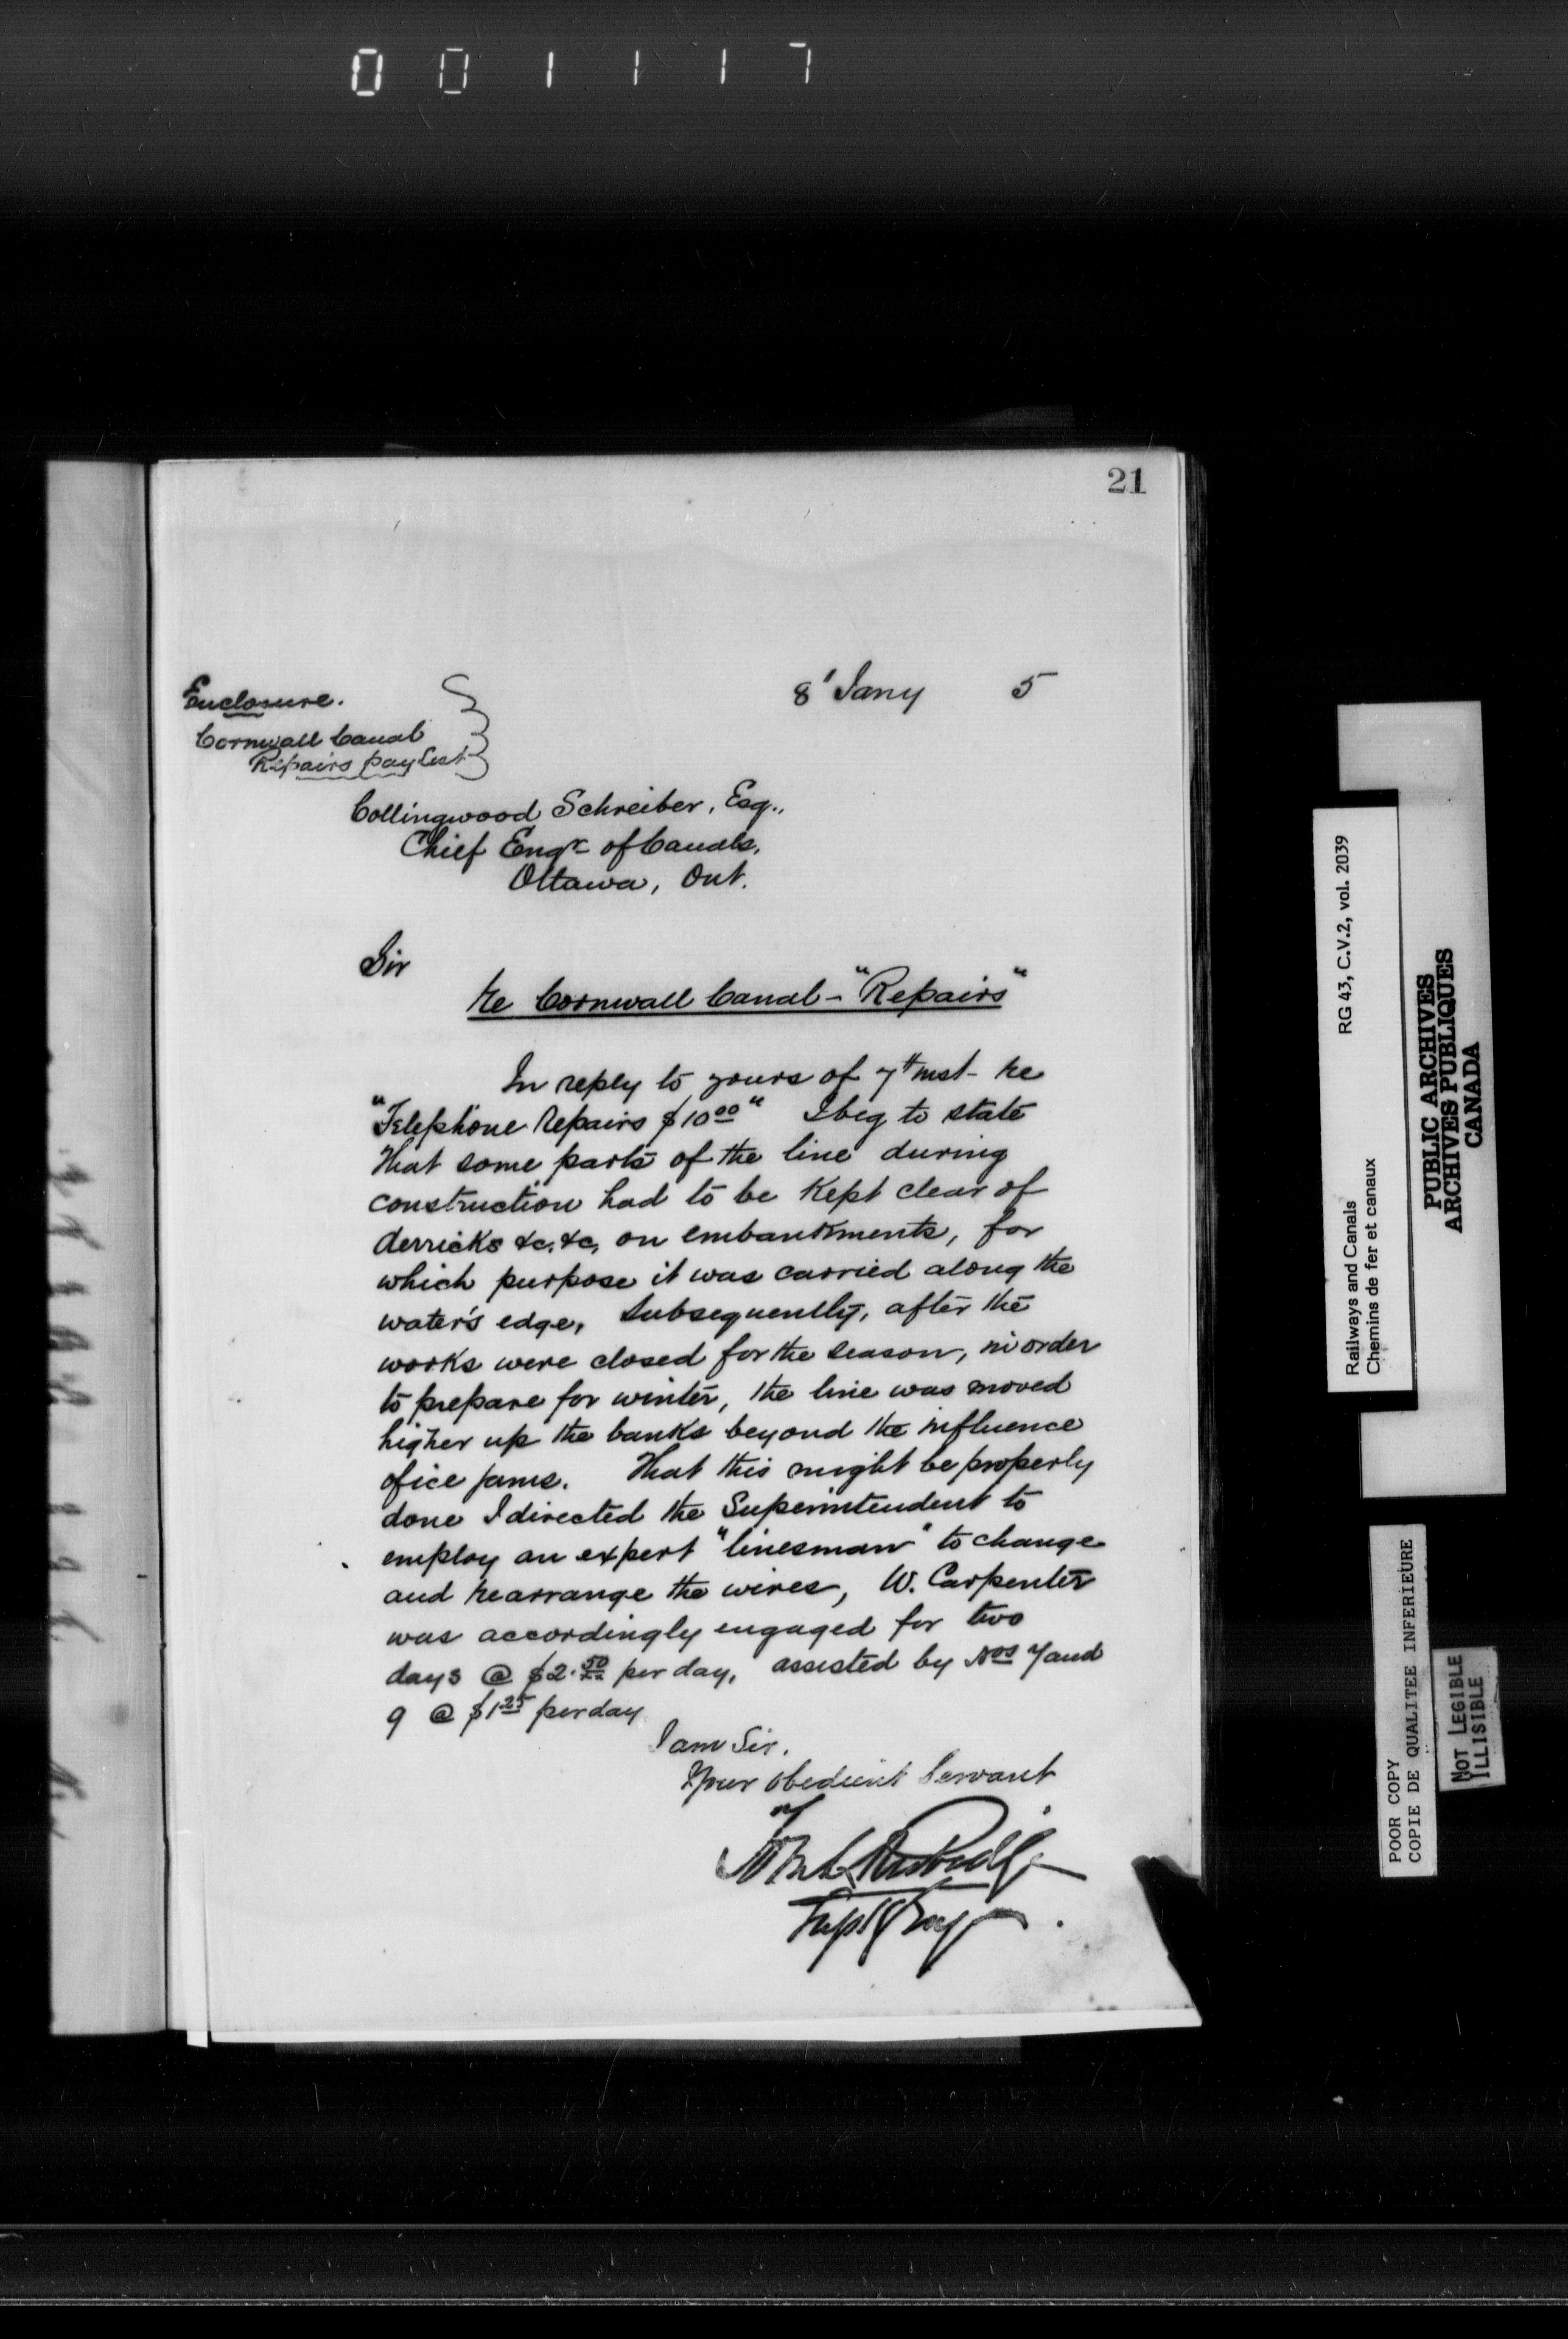 001117
21
8' Jany 5
Enclosure.
Cornwall Canal
Repairs pay list
Collingwood Schreiber, Esq.,
Chief Engr of Canals,
Ottawa, Ont.
Sir
Re Cornwall Canal - "Repairs"
In reply to yours of 7th inst - re
"Telephone Repairs $10.00" I beg to state
that some parts of the line during
construction had to be kept clear of
derricks &c, &c, on embankments, for
which purpose it was carried along the
water's edge, subsequently, after the
works were closed for the season, in order
to prepare for winter, the line was moved
higher up the banks beyond the influence
of ice jams. That this might be properly
done I directed the Superintendent to
employ an expert "linesman" to change
and rearrange the wires, W. Carpenter
was accordingly engaged for two
days @ $2.50 per day, assisted by Nos 7 and
9 @ $1.25 per day
I am Sir,
Your obedient Servant
RG 43, C.V.2, vol. 2039
Railways and Canals
Chemins de fer et canaux
PUBLIC ARCHIVES
ARCHIVES PUBLIQUES
CANADA
POOR COPY
COPIE DE QUALITEE INFERIEURE
NOT LEGIBLE
ILLISIBLE